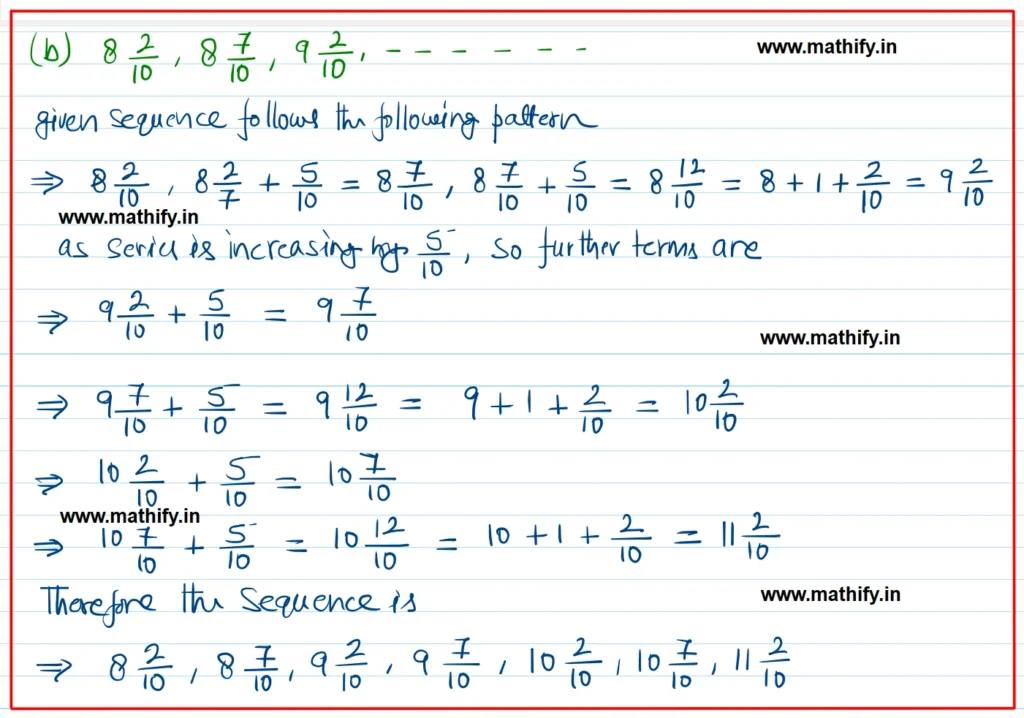 (b) 8 2/10, 8 7/10, 9 2/10, - - - - - - - www.mathify.in
given sequence follows the following pattern
⇒ 8 2/10, 8 2/7 + 5/10 = 8 7/10, 8 7/10 + 5/10 = 8 12/10 = 8 + 1 + 2/10 = 9 2/10
www.mathify.in
as series is increasing by 5/10, so further terms are
⇒ 9 2/10 + 5/10 = 9 7/10
www.mathify.in
⇒ 9 7/10 + 5/10 = 9 12/10 = 9 + 1 + 2/10 = 10 2/10
⇒ 10 2/10 + 5/10 = 10 7/10
www.mathify.in
⇒ 10 7/10 + 5/10 = 10 12/10 = 10 + 1 + 2/10 = 11 2/10
Therefore the sequence is www.mathify.in
⇒ 8 2/10, 8 7/10, 9 2/10, 9 7/10, 10 2/10, 10 7/10, 11 2/10